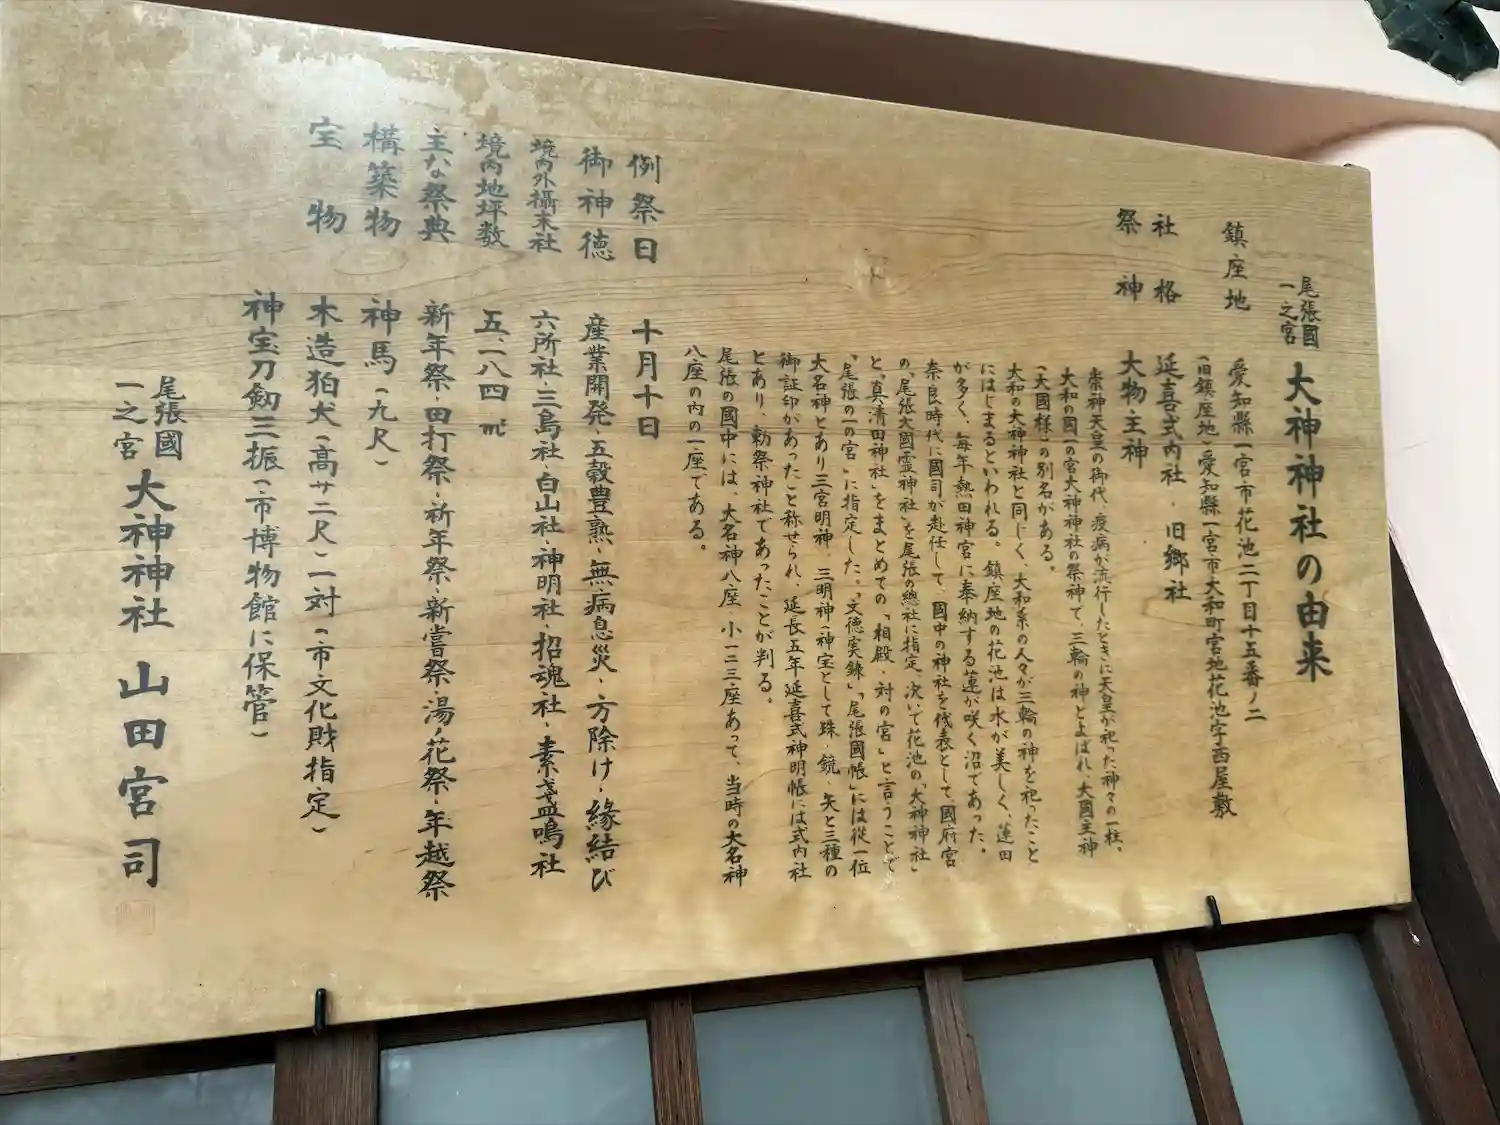 尾張國
一之宮
大神神社の由来
鎮座地 愛知縣一宮市花池二丁目十五番ノ二
(旧鎮座地)愛知縣一宮市大和町宮地花池字西屋敷
社格 延喜式内社・旧郷社
祭神 大物主神
崇神天皇の御代、疫病が流行したときに天皇が祀った神々の一柱。
大和の國一の宮大神神社の祭神で、三輪の神とよばれ、大國主神
(大國様)の別名がある。
大和の大神神社と同じく、大和系の人々が三輪の神を祀ったこと
にはじまるといわれる。鎮座地の花池は水が美しく、蓮田
が多く、毎年熱田神宮に奉納する蓮が咲く沼であった。
奈良時代に國司が赴任して、國中の神社を代表として、國府宮
の「尾張大國霊神社」を尾張の總社に指定、次いで花池の「大神神社」
と、「真清田神社」をまとめての「相殿・対の宮」と言うことで
「尾張の一の宮」に指定した。「文徳実錄」「尾張國帳」には従一位
大名神とあり三宮明神、三明神・神宝として珠・鏡・矢と三種の
御証印があった」と称せられ、延長五年延喜式神明帳には式内社
とあり、勅祭神社であったことが判る。
尾張の國中には、大名神八座・小一二三座あって、当時の大名神
八座の内の一座である。
例祭日 十月十日
御神徳 産業開発・五穀豊熟・無病息災・方除け・縁結び
境内外攝末社 六所社・三島社・白山社・神明社・招魂社・素戔嗚社
境内地坪数 五、一八四㎡
主な祭典 新年祭・田打祭・祈年祭・新嘗祭・湯ノ花祭・年越祭
構築物 神馬(九尺)
宝物 木造狛犬(高サ二尺)一対(市文化財指定)
神宝刀劔三振(市博物館に保管)
尾張國
一之宮
大神神社 山田宮司